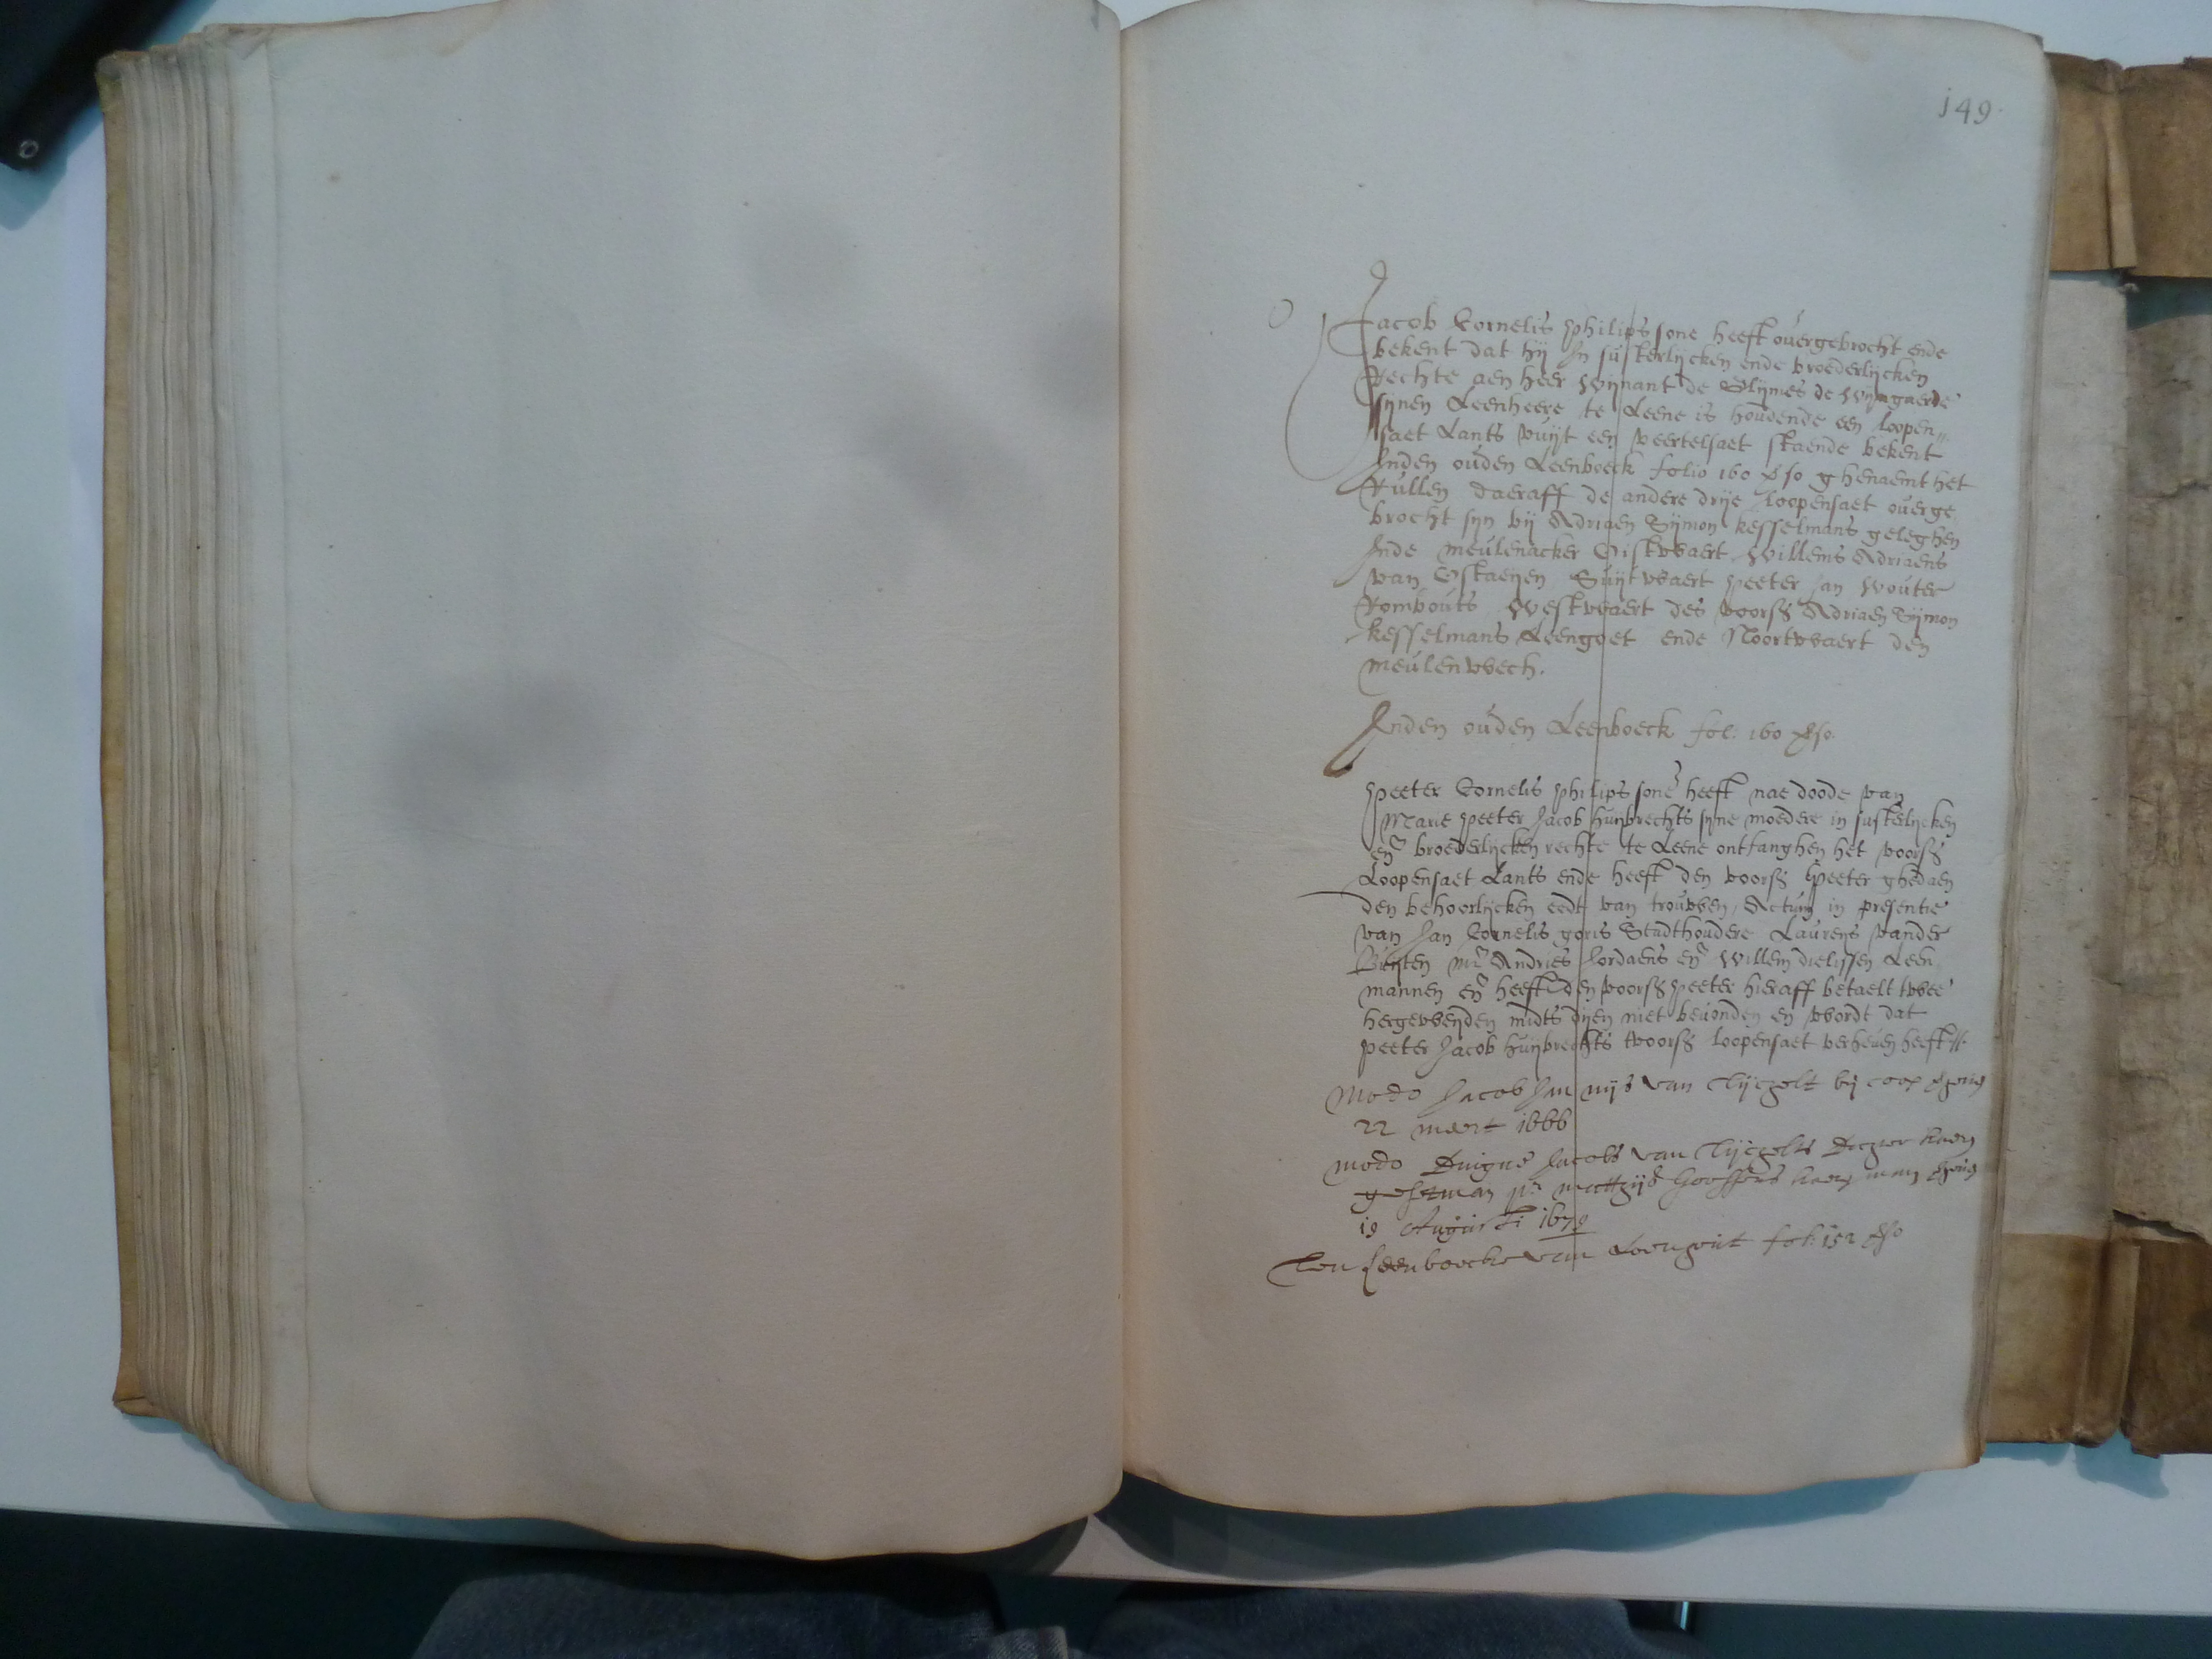 149.
Jacob Cornelis philips sone heeft overgebrocht ende
bekent dat hij In susterlijcken ende broederlijcken
Rechte aen heer Wijnant de Glijmes de Wijngaerde
sijnen Leenheere te Leene is houdende een loopen„
saet Lants vuijt een veertelsaet staende bekent
Inden ouden Leenboeck folio 160 vso ghenaemt het
Rullen daeraff de andere drije loopensaet overge
brocht sijn bij Adriaen Sijmon kesselmans geleghen
Inde meulenacker Oistwaert Willems Adriaens
van Ostaeijen Suijtwaert peeter Jan Wouter
Rombouts Westwaert des voors Adriaen Sijmon
kesselmans Leengoet ende Noortwaert den
meulenwech.
Inden ouden Leenboeck fol: 160 vso.
peeter Cornelis philips sone heeft nae doode van
Marie peeter Jacob huijbrechts sijne moedere in susterlijcken
en broederlijcken rechte te Leene ontfanghen het voors
Loopensaet Lants ende heeft den voors peeter ghedaen
den behoorlijcken eedt van trouwen, Actum in presentie
van Jan Cornelis goris Stadthoudere Laurens vander
mr Andries Jordaens en Willem dielissen Leen
mannen en heeft den voors peeter hieraff betaelt twee
hergeweijden midts dijen niet bevonden en wordt dat
peeter Jacob huijbrechts tvoors loopensaet verheven heeft
Modo Jacob Jan nijs van by coop
22 meert 1666
modo Jacobs van
mattijs
19 Augusti 1679
leenboecke van fol: 152 vso